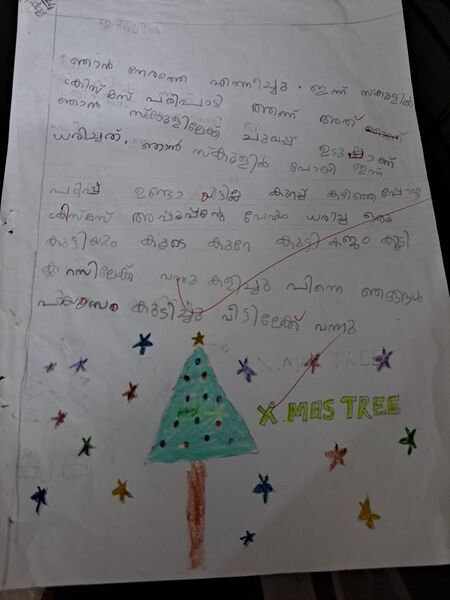 ഞാൻ നേരത്തെ എണീച്ചു. ഇന്ന് സ്കൂളിൽ
ക്രിസ്മസ് പരിപാടി ആണ് അത്
ഞാൻ സ്കൂളിലേക്ക് ചുവപ്പ് ഉടുപ്പാണ്
ധരിച്ചത്. ഞാൻ സ്കൂളിൽ പോയി ഇന്ന്
പഠിപ്പ് ഉണ്ടാ യിട്ടില്ല കുറച്ച് കഴിഞ്ഞപ്പോഴ
ക്രിസ്മസ് അപ്പൂപ്പന്റെ വേഷം ധരിച്ച ഒരു
കുട്ടിയും കൂടെ കുറേ കുട്ടികളും കൂടി
ക്ലാസിലേക്ക് വന്നു കളിച്ചു പിന്നെ ഞങ്ങൾ
പായസം കുടിച്ചു വീട്ടിലേക്ക് വന്നു
X.MAS TREE
X.MAS TREE